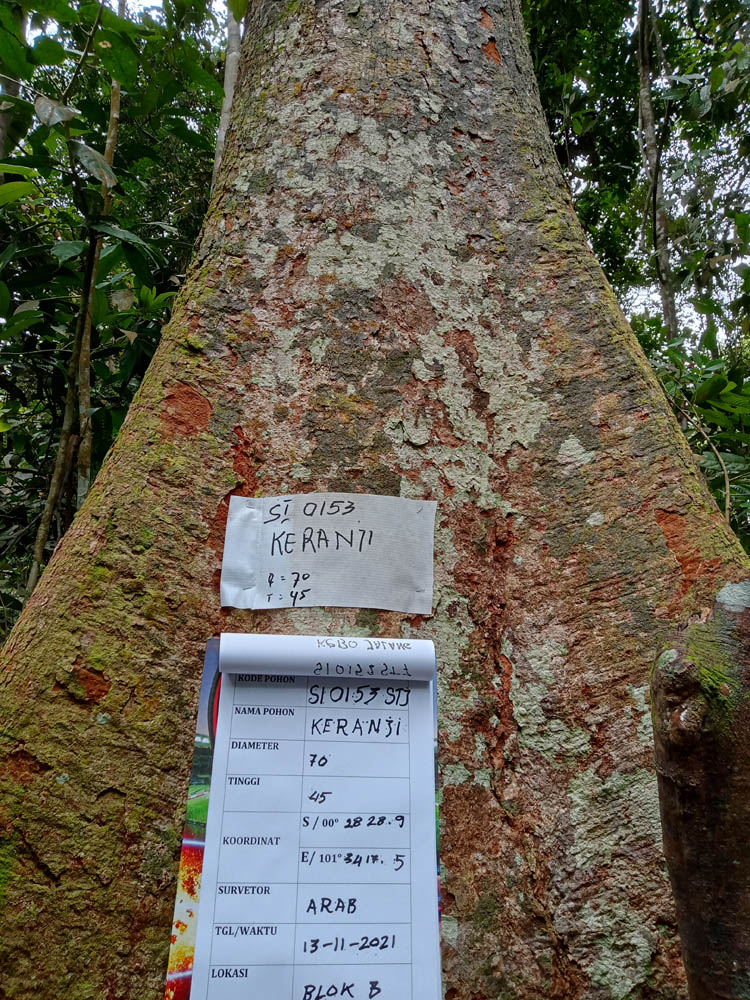 SI 0153
KERANJI
φ = 70
T = 45
KODE POHON SI 0153 STJ
NAMA POHON KERANJI
DIAMETER 70
TINGGI 45
KOORDINAT S / 00° 28 28.9
E/ 101° 34 17. 5
SURVETOR ARAB
TGL/WAKTU 13-11-2021
LOKASI BLOK B